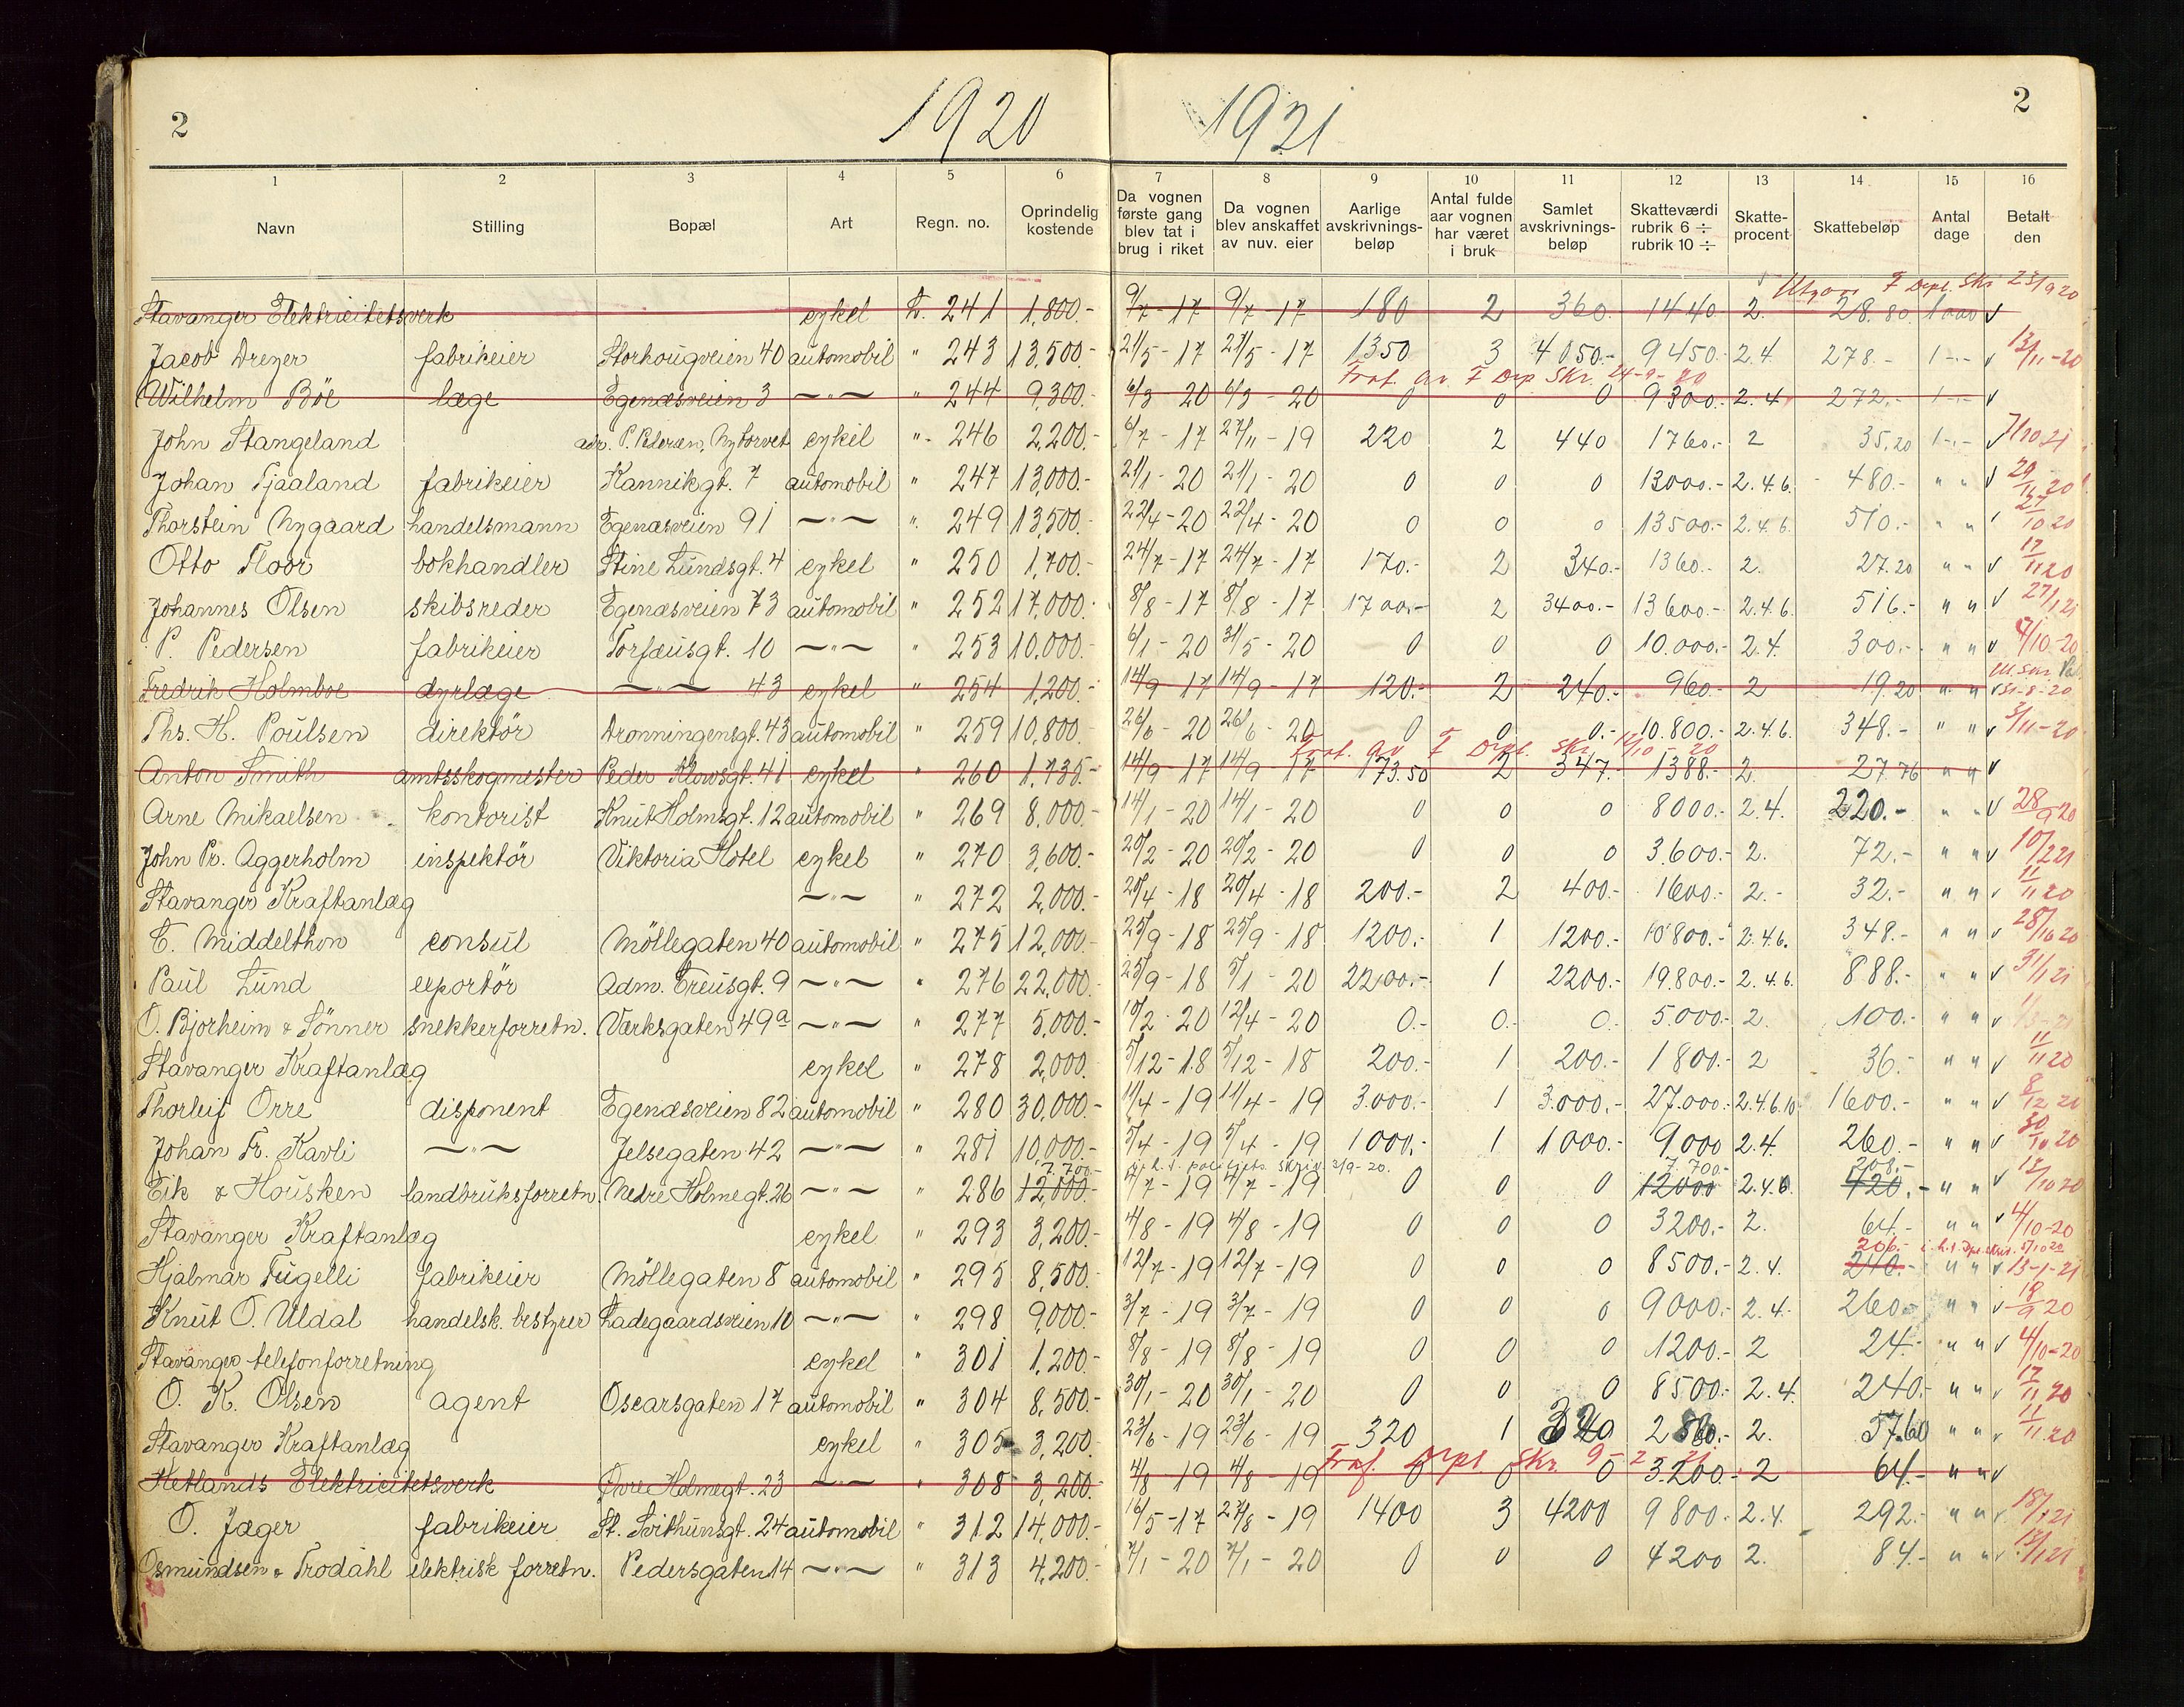 2 1920 1921 2
1 2 3 4 5 6 7 8 9 10 11 12 13 14 15 16
Navn Stilling Bopæl Art Regn. no. Oprindelig kostende Da vognen første gang blev tat i brug i riket Da vognen blev anskaffet av nuv. eier Aarlige avskrivnings-beløp Antal fulde aar vognen har været i bruk Samlet avskrivnings-beløp Skatteværdi rubrik 6 ÷ rubrik 10 ÷ Skatte-procent Skattebeløp Antal dage Betalt den
Stavanger Elektricitetsverk cykel L. 241 1,800.- 9/7-17 9/7-17 180 2 360. 1440. 2. 28.80 1 aar ✓
Jacob Dreyer fabrikeier Storhougveien 40 automobil " 243 13,500.- 21/5-17 21/5-17 1350 3 4050.- 9450.- 2.4. 278.- 1 -"- ✓ 13/11-20
Fraf. av F Dep Skr. 24-9-20
Wilhelm Böe læge Egenæsveien 3 -"- " 244 9,300.- 6/3-20 6/3-20 0 0 0 9300.- 2.4 272.- 1 -"- ✓
John Stangeland adr. P. Pedersen, Nytorvet cykel " 246 2,200.- 6/7-17 27/11-19 220 2 440 1760.- 2 35.20 1 -"- ✓ 7/10 21
Johan Tjaaland fabrikeier Kannikgt. 7 automobil " 247 13,000.- 21/1-20 21/1-20 0 0 0 13000.- 2.4.6. 480.- " " ✓ 29/11 20
Thorstein Nygaard handelsmann Egenæsveien 91 -"- " 249 13,500.- 22/4-20 22/4-20 0 0 0 13500.- 2.4.6. 510.- " " ✓ 27/10 20
Otto Floor bokhandler Stine Lundsgt. 4 cykel " 250 1,700.- 24/7-17 24/7-17 170.- 2 340.- 1360.- 2. 27.20 " " ✓ 17/11 20
Johannes Olsen skibsreder Egenæsveien 73 automobil " 252 17,000.- 8/8-17 8/8-17 1700.- 2 3400.- 13600.- 2.4.6. 516.- " " ✓ 27/1 21
P. Pedersen fabrikeier Torfæusgt. 10 -"- " 253 10,000.- 6/1-20 31/5-20 0 0 0 10.000.- 2.4. 300.- " " ✓ 7/10-20
Fredrik Holmboe dyrlæge -"- 43 cykel " 254 1,200.- 14/9-17 14/9-17 120.- 2 240.- 960.- 2 19.20 " " ✓ 31-8-20
Ths. H. Poulsen direktör Dronningensgt. 43 automobil " 259 10,800.- 26/6-20 26/6-20 0 0 0.- 10.800.- 2.4.6. 348.- " " ✓ 3/11-20
Fraf. av F Dept. Skr. 12/10-20
Anton Smith amtsskogmester Peder Klowsgt. 41 cykel " 260 1,735.- 14/9-17 14/9-17 173.50 2 347.- 1388.- 2. 27.76 " " ✓
Arne Mikaelsen kontorist Knut Holmsgt. 12 automobil " 269 8,000.- 14/1-20 14/1-20 0 0 0 8000.- 2.4. 220.- " " ✓ 28/9 20
John Pr. Aggerholm inspektör Viktoria Hotel cykel " 270 3,600.- 20/2-20 20/2-20 0 0 0 3.600.- 2. 72.- " " ✓ 10/2 21
Stavanger Kraftanlæg -"- " 272 2,000.- 20/4-18 20/4-18 200.- 2 400.- 1600.- 2.- 32.- " " ✓ 11/11 20
C. Middelthon consul Möllegaten 40 automobil " 275 12,000.- 25/9-18 25/9-18 1200.- 1 1200.- 10800.- 2.4.6. 348.- " " ✓ 28/10 20
Paul Lund exportör Adm. Creusgt. 9 -"- " 276 22,000.- 25/9-18 5/1-20 2200.- 1 2200.- 19.800.- 2.4.6. 888.- " " ✓ 31/1 21
O. Bjorheim & Sönner snekkerforretn. Værksgaten 49a -"- " 277 5,000.- 10/2-20 12/4-20 0.- 0.- 0.- 5.000.- 2. 100.- " " ✓
Stavanger Kraftanlæg cykel " 278 2,000. 5/12-18 5/12-18 200.- 1 200.- 1800.- 2 36.- " " ✓ 11/11 20
Thorleif Orre disponent Egenæsveien 82 automobil " 280 30,000.- 11/4-19 11/4-19 3.000.- 1 3.000.- 27.000.- 2.4.6.10 1600.- " " ✓ 8/12 20
Johan Fr. Kavli -"- Jelsegaten 42 -"- " 281 10,000.- 5/4-19 5/4-19 1000.- 1 1000.- 9000 2.4. 260.- " " ✓ 30/10 20
7.700.- i h. t. politiets skriv. 2/9-20. 7.700.- 208.-
Eik & Housken landbruksforretn. Nedre Holmegt. 26 -"- " 286 12,000.- 4/7-19 4/7-19 0 0 0 12000 2.4.6. 420.- " " ✓ 12/10 20
Stavanger Kraftanlæg cykel " 293 3,200.- 4/8-19 4/8-19 0 0 0 3200.- 2. 64.- " " ✓ 4/10-20
206.-
Hjalmar Fugelli fabrikeier Möllegaten 8 automobil " 295 8,500.- 12/7-19 12/7-19 0 0 0 8500.- 2.4. 240.- " " ✓ 13-1-21
Knut O. Uldal handelsk. bestyrer Ladegaardsveien 10 -"- " 298 9,000.- 3/7-19 3/7-19 0 0 0 9000.- 2.4. 260.- " " ✓ 18/9 20
Stavanger telefonforretning cykel " 301 1,200.- 8/8-19 8/8-19 0 0 0 1200.- 2 24.- " " ✓ 4/10-20
O. K. Olsen agent Oscarsgaten 17 automobil " 304 8,500.- 30/1-20 30/1-20 0 0 0 8500.- 2.4. 240.- " " ✓ 17/11 20
Stavanger Kraftanlæg cykel " 305 3,200. 23/6-19 23/6-19 320 1 320 2880.- 2. 57.60 " " ✓ 11/11 20
Fraf. Dept. Skr. 9-2-21
Hetlands Elektricitetsverk Övre Holmegt. 23 -"- " 308 3,200.- 4/8-19 4/8-19 0 0 0 3.200.- 2 64.- " " ✓
O. Jæger fabrikeier St. Svithunsgt. 24 automobil " 312 14,000.- 16/5-17 27/8-19 1400 3 4200 9800.- 2.4. 292.- " " ✓ 18/1 21
Osmundsen & Frodahl elektrisk forretn. Pedersgaten 14 -"- " 313 4,200.- 7/1-20 7/1-20 0 0 0 4200 2. 84.- " " ✓